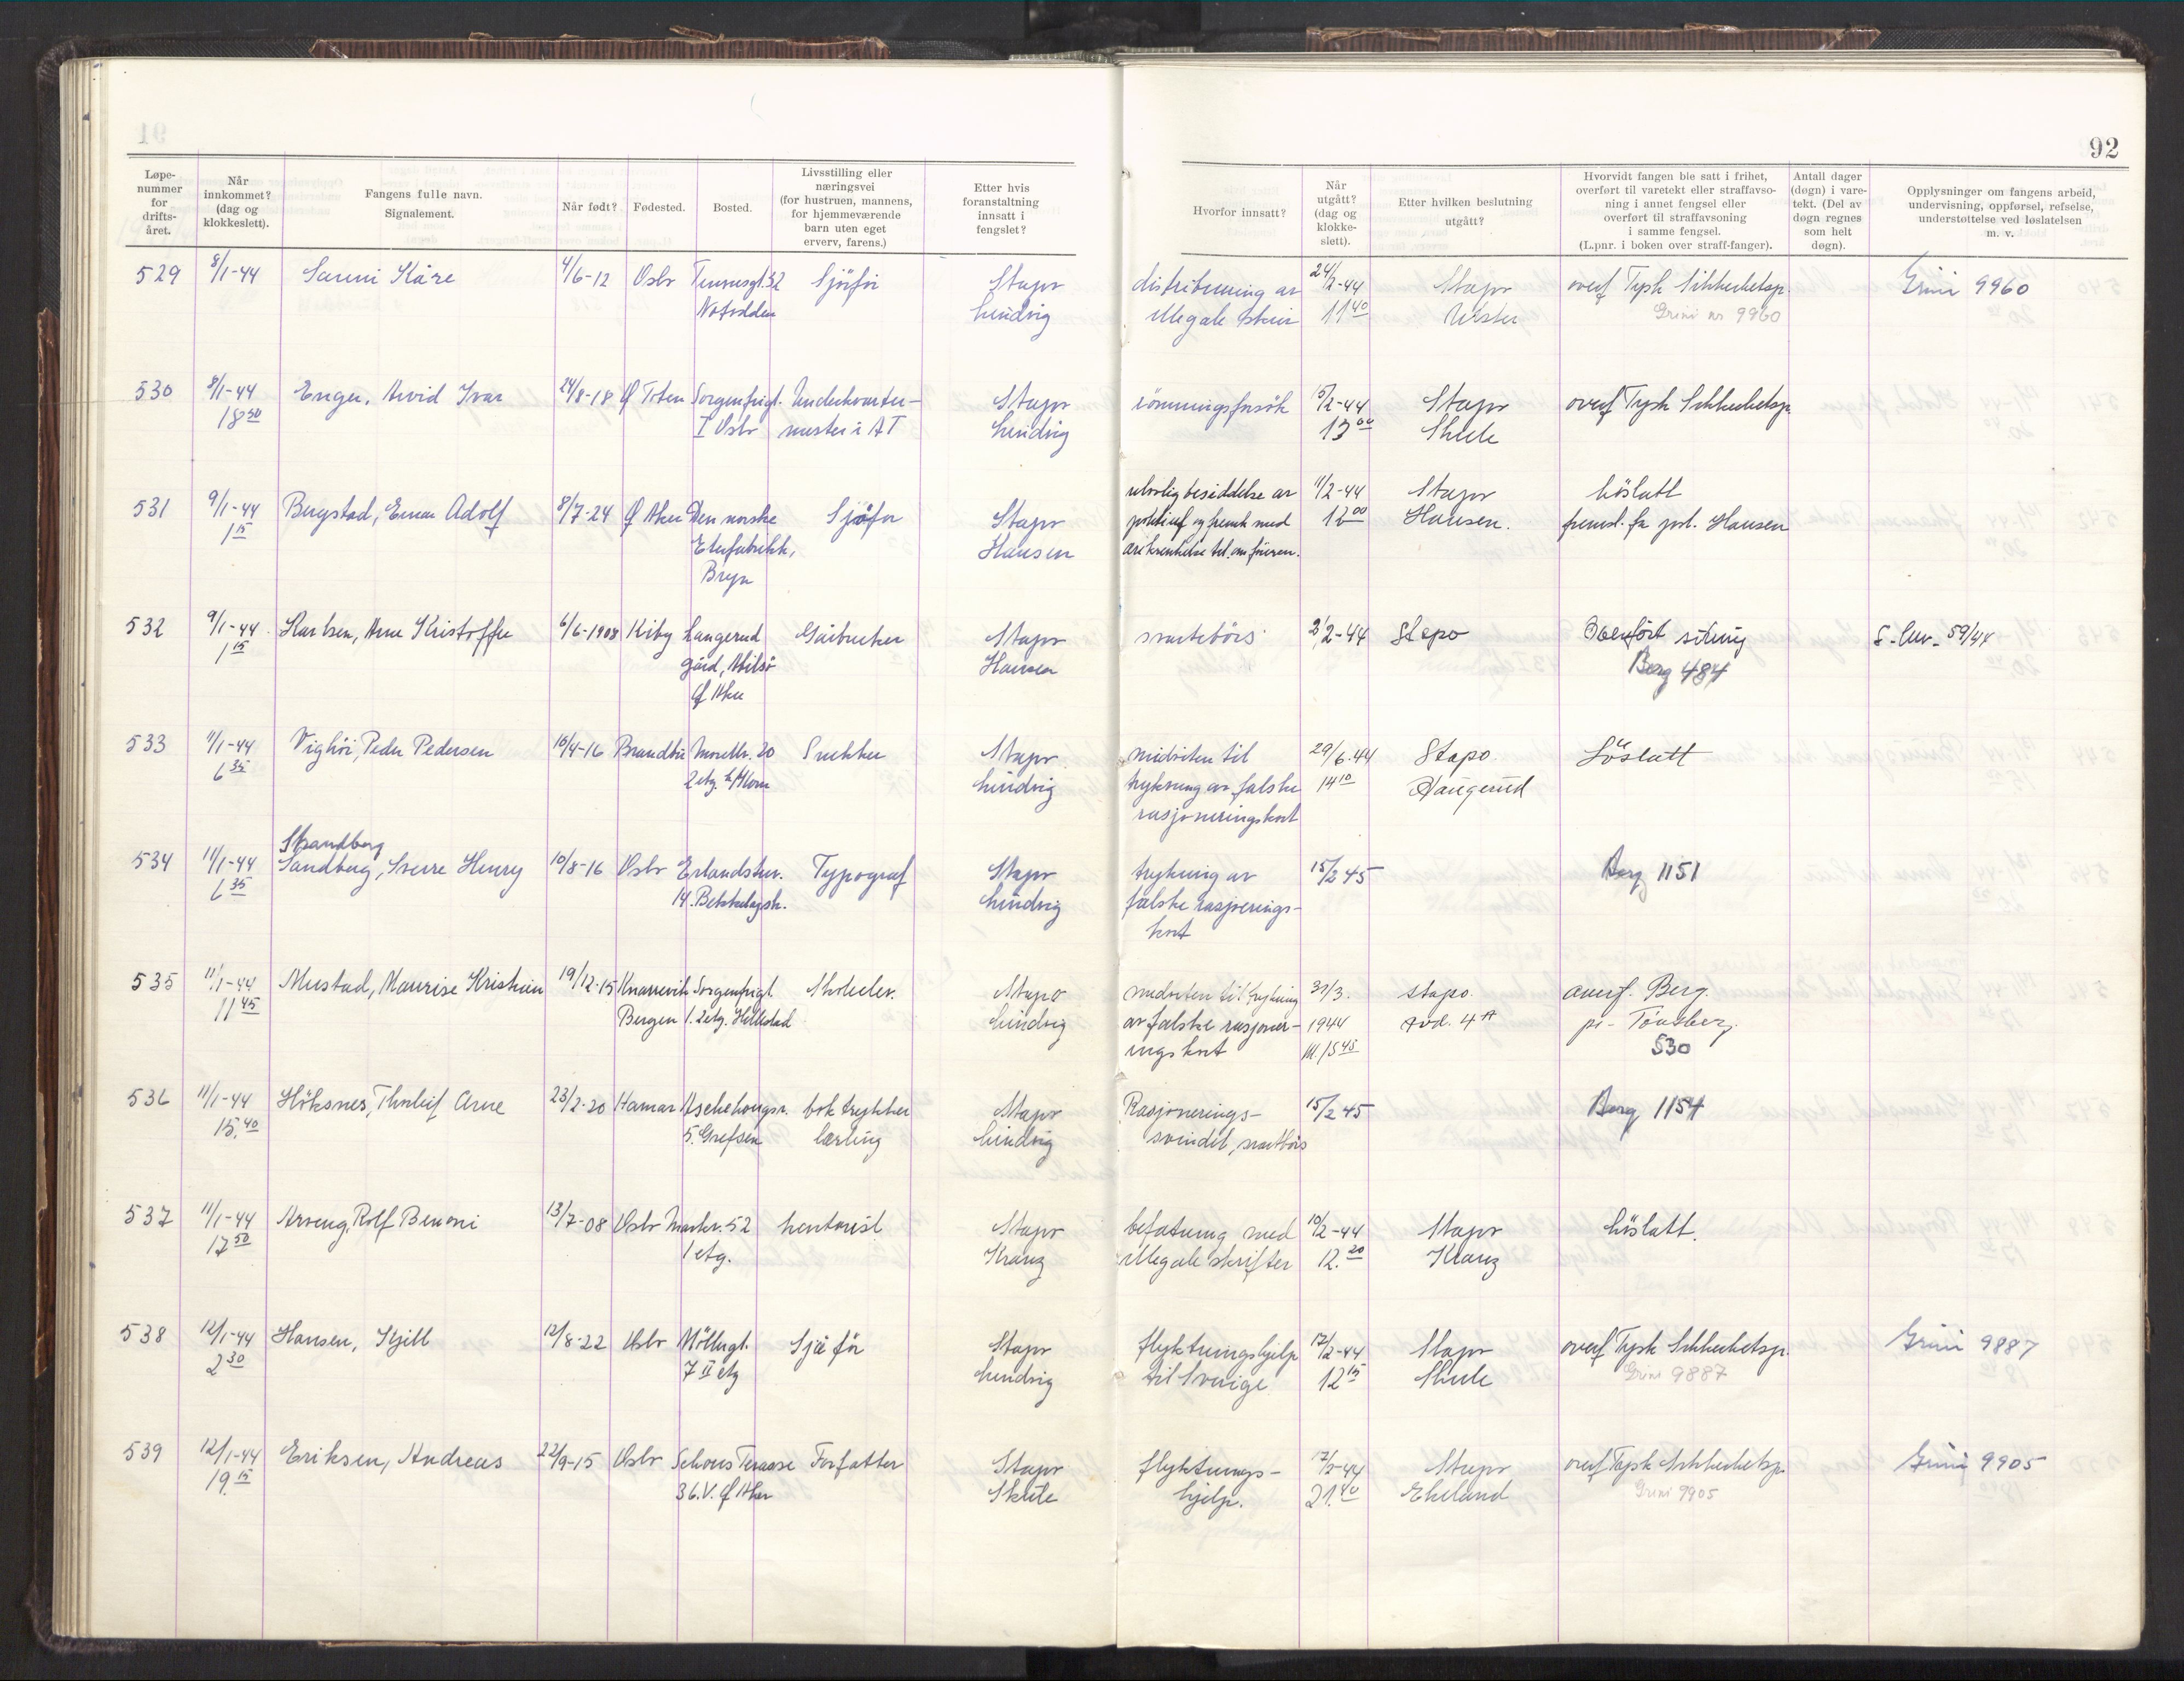 92
Løpe-
nummer
for
drifts-
året.
Når
innkommet?
(dag og
klokkeslett).
Fangens fulle navn.
Signalement.
Når født?
Fødested.
Bosted.
Livsstilling eller
næringsvei
(for hustruen, mannens,
for hjemmeværende
barn uten eget
erverv, farens.)
Etter hvis
foranstaltning
innsatt i
fengslet?
Hvorfor innsatt?
Når
utgått?
(dag og
klokke-
slett).
Etter hvilken beslutning
utgått?
Hvorvidt fangen ble satt i frihet,
overført til varetekt eller straffavso-
ning i annet fengsel eller
overført til straffavsoning
i samme fengsel.
(L.pnr. i boken over straff-fanger).
Antall dager
(døgn) i vare-
tekt. (Del av
døgn regnes
som helt
døgn).
Opplysninger om fangens arbeid,
undervisning, oppførsel, refselse,
understøttelse ved løslatelsen
m. v.
529 8/1-44 Sanni Kåre 4/6-12 Oslo 32 Sjåfør Stapo distribuering av 24/2-44 Stapo overf Tysk Sikkerhetsp. Grini 9960
Notodden Lindvig illegale skrir 11 40 Grini nr 9960
530 8/1-44 Enger, Arvid Ivar 24/8-18 Ø Toten Sorgenfrigt. Underkvarter- Stapo römmingsforsök 15/2-44 Stapo overf Tysk Sikkerhetsp
18 50 I Oslo mester i AT Lindvig 13 00 Skule
531 9/1-44 Bergstad, Einar Adolf 8/7-24 Ø Aker Den norske Sjåfør Stapo ulovlig besiddelse av 11/2-44 Stapo Löslatt
1 15 Eterfabrikk, Hansen politiunf og fremk med 12 00 Hansen. fremst. for pol. Hansen
Bryn ærekrenkelse tel. om föreren.
532 9/1-44 Karlsen, Arne Kristoffer 6/6-1908 Kiby Langerud Gårbruker Stapo svartebörs 2/2-44 Stapo Overfört Berg 484 S-luv- 59/44
1 15 gård, Abilsö Hansen
Ø Aker
533 11/1-44 Peder Pedersen 16/4-16 Brandbu 20 Snekker Stapo medviten til 29/6.44 Stapo. Löslatt
6 35 2 etg. Lindvig trykning av falske 14 10 Haugerud
rasjoneringskort
Strandberg
534 11/1-44 Sandberg, Sverre Henry 10/8-16 Oslo Erlandstuv. Typograf Stapo trykning av 15/2 45 Berg 1151
6 35 14. Bekkelagsh. Lindvig falske rasjonerings-
kort
535 11/1-44 Mustad, Maurise Kristian 19/12-15 Knarrevik Sorgenfrigt. Skoleelev. Stapo medviten til trykning 31/3. Stapo. overf. Berg.
11 45 Bergen 1. 2 etg. Hellestad Lindvig av falske rasjoner- 1944 Avd. 4A pr- Tönsberg.
ingskort kl. 15 45 530
536 11/1-44 Höksnes, Thorleif Arne 23/2-20 Hamar Aschehougsv. boktrykker Stapo Rasjonerings- 15/2 45 Berg 1154
15.40 5. Grefsen lærling Lindvig svindel, svartbörs
537 11/1-44 Arveng, Rolf Benoni 13/7-08 Oslo Markv. 52 kontorist Stapo befatning med 10/2-44 Stapo Löslatt.
17 50 1 etg. Kranz illegale skrifter 12.20 Kranz
538 12/1-44 Hansen, Kjell 12/8-22 Oslo Möllergt. Sjåfør Stapo flyktningshjelp 12/2-44 Stapo overf Tysk Sikkerhetsp. Grini 9887
2 30 7 II etg Lindvig til Sverige 12 15 Skule Grini 9887
539 12/1-44 Eriksen, Andreas 22/9-15 Oslo Schous Terasse Forfatter Stapo flyktnings- 12/2-44 Stapo overf Tysk Sikkerhetsp. Grini 9905
19.15 36. V. Ø Aker Skule hjelp. 21.40 Ekeland Grini 9905